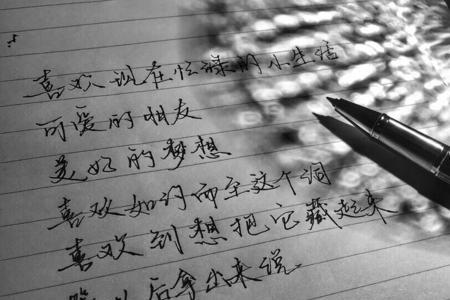 喜欢现在忙碌的小生活
可爱的朋友
美好的梦想
喜欢如约而至这个词
喜欢到想把它藏起来
以后拿出来说